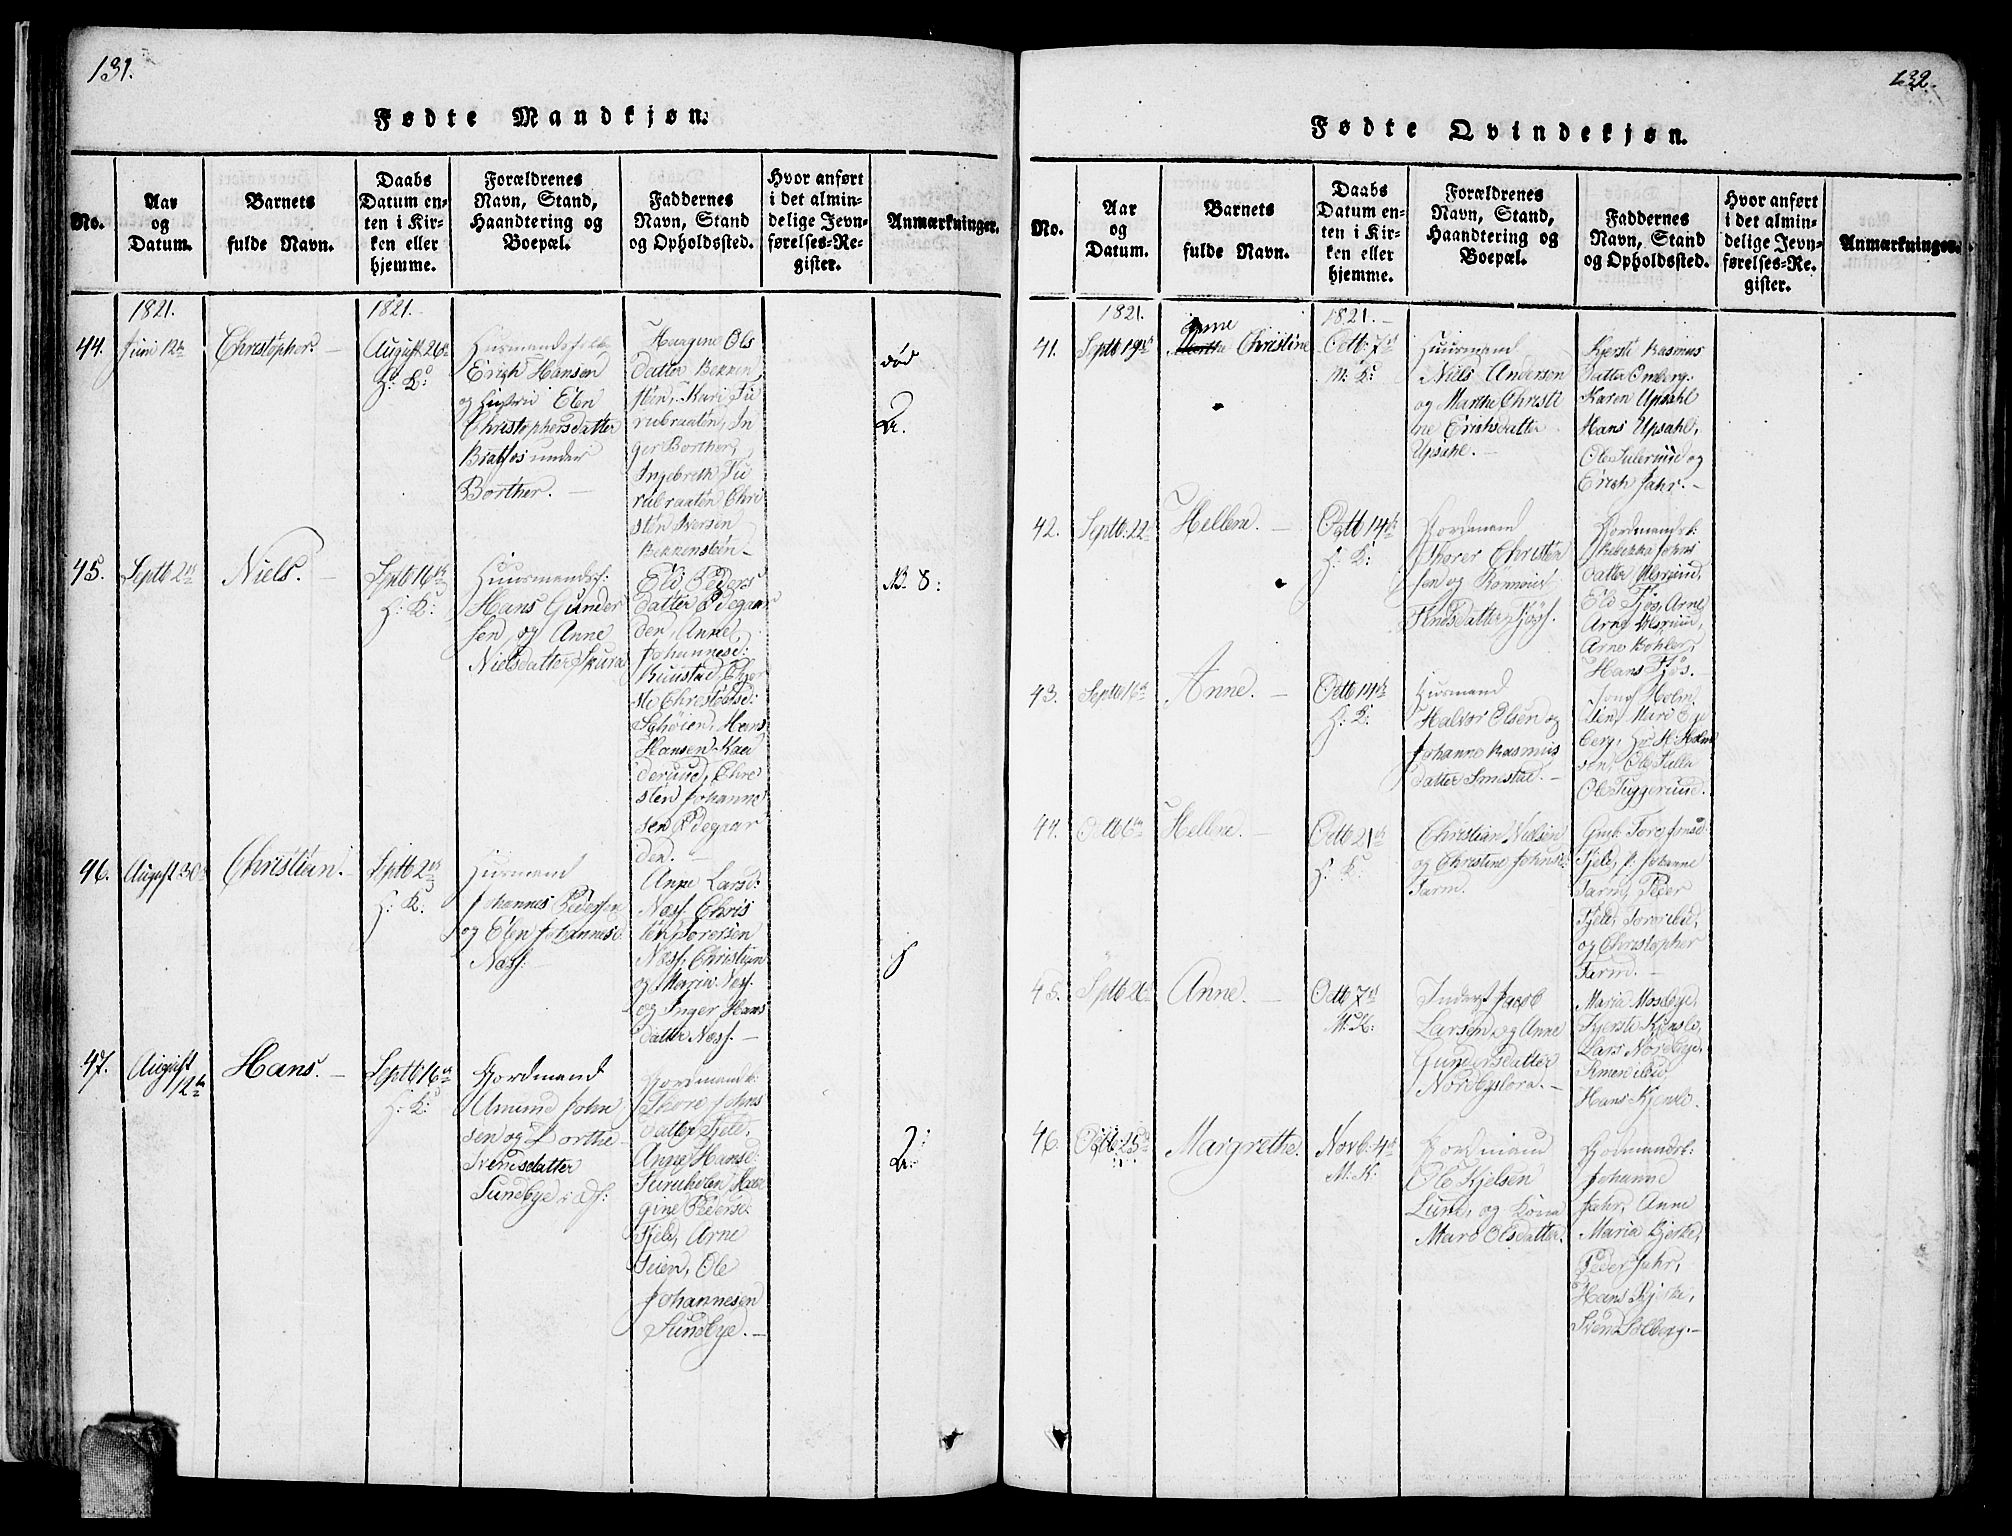 131.
Fødte Mandkjøn.
No.
Aar
og
Datum.
Barnets
fulde Navn.
Daabs
Datum en-
ten i Kir-
ken eller
hjemme.
Forældrenes
Navn, Stand,
Haandtering og
Boepæl.
Faddernes
Navn, Stand
og Opholdssted.
Hvor anført
i det almin-
delige Jevn-
førelses-Re-
gister.
Anmærkninger.
1821.
1821.
44.
Juni 12te
Christopher.
August 26de
H: K:
Erich Hansen
og Hustrue Elen
Christophersdatter
under
Borther.
Margine Ols
datter Bekken
sten, Kari Fu
rubraaten, In
ger Borther,
Ingebreth Fu
rubraaten Chri
sten Iversen
Bekkensten
død
45.
Septb 2den
Niels.
Septb 16de
H: K:
Huusmandsf:
Hans Gunder
sen, og Anne
Nielsdatter Skura
Eli Peders
datter Ødegaar
den, Anne
Johannesd:
Ruustad, Kjer
sti Christensd:
Schøien, Hans
Hansen
derud, Chri
sten Johanne
sen Ødegaar
den.
N. 8:
46.
August 30te
Christian.
Septb 2den
H: K:
Huusmand
Johannes Pedersen
og Elen Johannesd:
Næss.
Anne Larsd:
Næss, Chris
ten Torersen
Næss, Christian
og Maria Næss
og Inger Hans
datter Næss.
47.
August
12te
Hans.
Septb 16de
H: K:
Gordmand
Amund John
sen og Dorthe
Svendsdatter
Sundbye
Gordmandsk:
Thore Johns
datter Fjeld,
Anne Hansd:
gine Pedersd:
Fjeld, Arne
Teien, Ole
Johannesen
Sundbye.
132.
Fødte Qvindekjøn.
No.
Aar
og
Datum.
Barnets
fulde Navn.
Daabs
Datum en-
ten i Kir-
ken eller
hjemme.
Forældrenes
Navn, Stand,
Haandtering og
Boepæl.
Faddernes
Navn, Stand
og Opholdssted.
Hvor anført
i det almin-
delige Jevn-
førelses-Re-
gister.
Anmærkninger.
1821.
1821.
41.
Septb 19de
Anne
Marthe Christine
Octb: 7de
M: K:
Huusmand
Niels Andersen
og Marthe Christi
ne Erichsdatter
Upsahl.
Kjersti Rasmus
datter Omberg,
Karen Upsahl
Hans Upsahl,
Ole Sulerud og
Erich Jahr.
42.
Septb: 22de
Hellene.
Octb 14de
H: K:
Gordmand
Thorer Christen
sen og
Knudsdatter
Gordmandsk:
Rebekka Johns
datter
Eli Tjøs, Arne
Arne
Arne Bøhler,
Hans Tjøs.
43.
Septb 16de
Anne.
Octb 14de
H: K:
Huusmand
Halvor Olsen og
Johanne Rasmus
datter Smestad.
Holm
lien, Mari Eje
berg,
sen, Ole Lilla
Ole Tuggerud.
44.
Octb 6te
Hellene.
Octb 21de
H: K:
Christian Nielsen
og Christine Johnsd:
Farm.
Fjeld, P: Johanne
Farm, Peder
Fjeld, Tore ibid,
og Christopher
Farm.
45.
Septb 26de
Anne.
Octb 7de
M: K:
Inderst Jacob
Larsen og Anne
Gundersdatter
Nordbyslora.
Maria Mosebye,
Kjersti Kjensle,
Lars Nordbye,
Simen ibid,
Hans Kjensle.
46.
Octb: 25de
Margrethe.
Novb: 4de
M: K:
Gordmand
Ole Kjelsen
Lund, og Kona
Mare Olsdatter.
Gordmandsk:
Johanne
Jahr, Anne
Maria Bjerke,
Peder Jahr,
Hans Bjerke,
Svend Solberg.